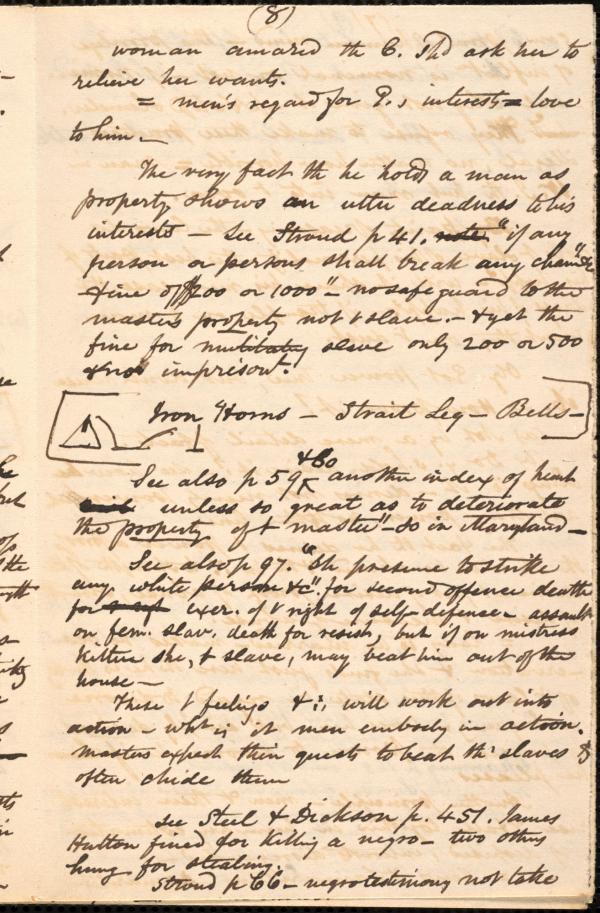 (8)
woman amazed th C. Shd ask her to
relieve her wants.
= men's regard for P.s interests = love
to him. —
The very fact th he holds a man as
property shows an utter deadness to his
interests — See Stroud p 41. note "if any
person or persons shall break any chain" &c
& fine of $200 or 1000" — no safe guard to the
masters property not t slave. — & yet the
fine for mutilating slave only 200 or 500
& no imprisont.
Iron Horns — Strait Leg — Bells —
See also p 59 & 60 another index of heart
unless so great as to deteriorate
the property of t master" — So in Maryland —
See also p 97. "Sh presume to strike
any white person &c". for second offence death
for exer. of t right of self-defence — assault
on fem. slav. death for resist, but if on mistress
she, t slave, may beat him out of the
house —
These t feelings & will work out into
action — wht is it men embody in action.
Masters expect their guests to beat th' slaves &
often chide them
see Steel & Dickson p. 451. James
Hutton fined for killing a negro — two others
hung for stealing.
Stroud p 66 — negro testimony not take